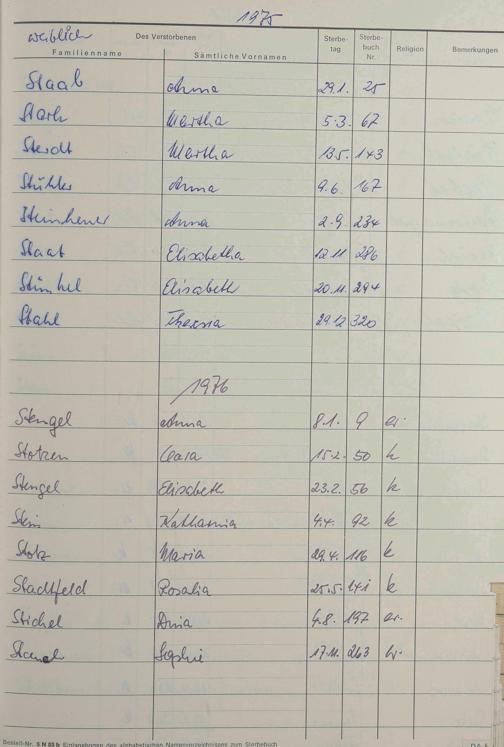 1975
weiblich Des Verstorbenen Sterbe- Sterbe-
Familienname Sämtliche Vornamen tag buch Religion Bemerkungen
Nr.
Staab Anna 29.1. 25
Stark Martha 5.3. 67
Steidt Martha 13.5. 143
Stühler Anna 9.6. 167
Anna 2.9. 234
Staat Elisabetha 12.11 286
Stinkel Elisabeth 20.11. 294
Stahl Theresa 29.12 320
1976
Stengel Anna 8.1. 9 ev.
Stotzen Clara 15.2. 50 k
Stengel Elisabeth 23.2. 56 k
Stein Katharina 4.4. 92 k
Stotz Maria 29.4. 116 k
Stadtfeld Rosalia 25.5. 141 k
Stichel 4.8. 197 ev.
Sophie 17.11. 263
Bestell-Nr. S N 03 b Einlagebogen des alphabetischen Namensverzeichnisses zum Sterbebuch